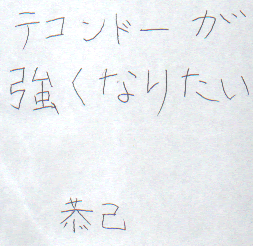 テコンドーが
強くなりたい
恭己